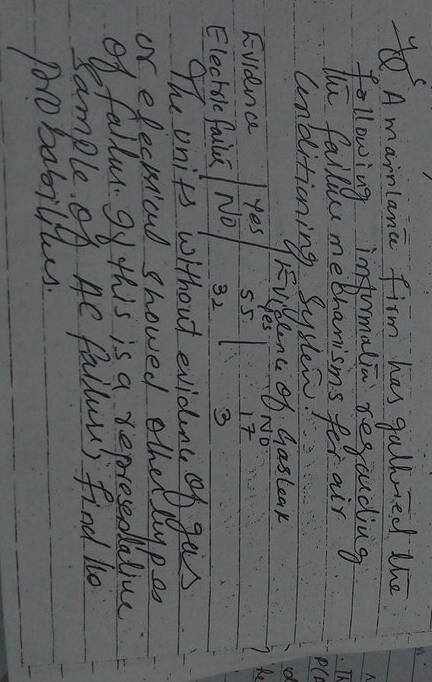 A maintance firm has gathered the
following information regarding
the failure mechanisms for air
Conditioning System.
Evidence of Gasleak
Yes No
Evidence Yes 55 17
Electric failure No 32 3
The units without evidence of gas
or electrical showed other types
of failure. If this is a representative
sample of AC failure, find the
probabilities.